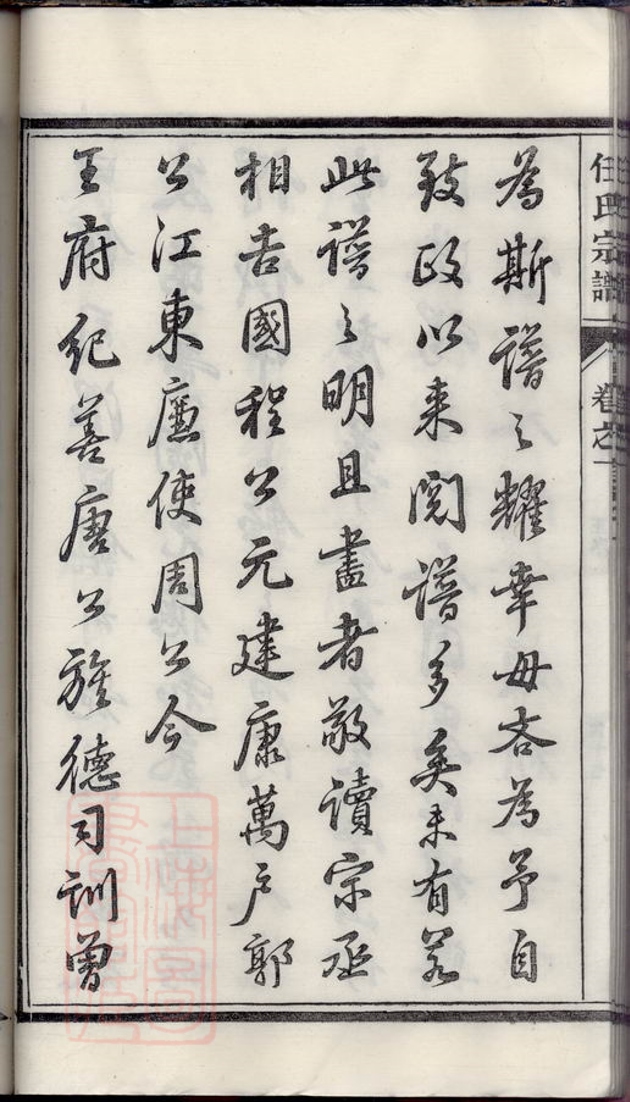 任氏宗譜
卷之一
為斯譜之耀幸毋吝為予自
致政以來閱譜多矣未有若
此譜之明且盡者敬讀宗丞
相吉國程公元建康萬戶郭
公江東廉使周公今
王府紀善唐公族德司訓曾
上海圖書館藏